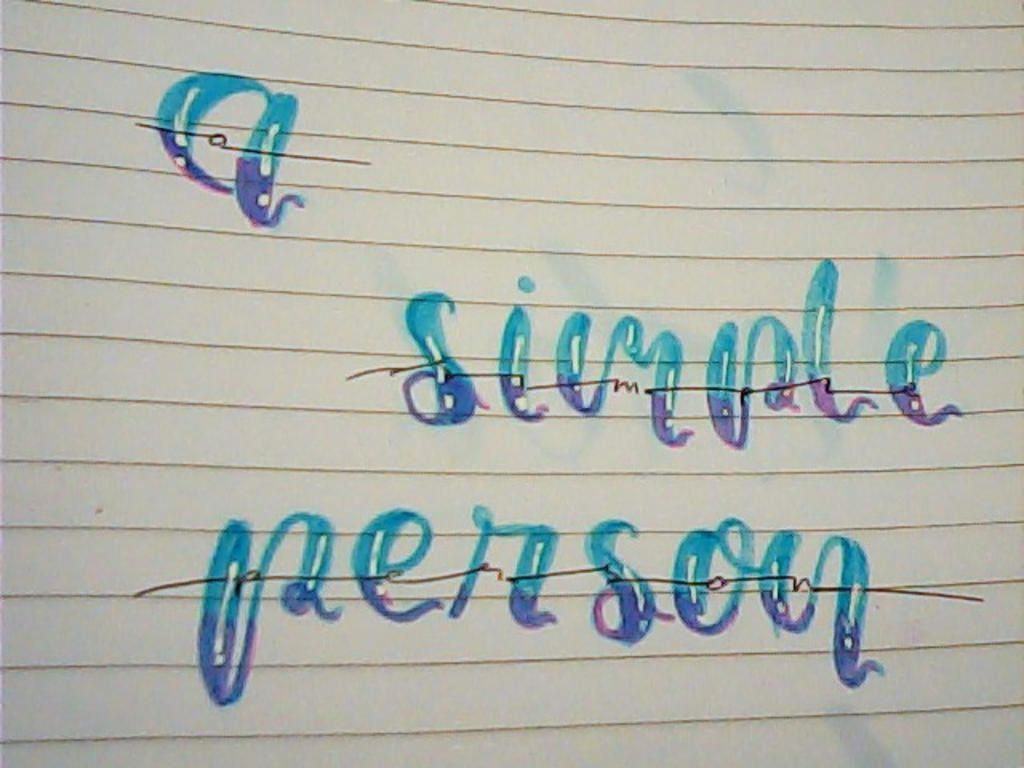 a
simple
person